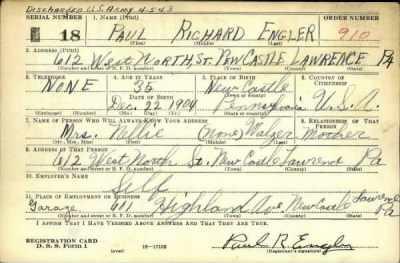 Discharged U.S. Army 4-5-43
SERIAL NUMBER 1. NAME (Print) ORDER NUMBER
18 PAUL RICHARD ENGLER 910
(First) (Middle) (Last)
2. ADDRESS (Print)
612 WEST NORTH ST. NEW CASTLE LAWRENCE PA
(Number and street or R. F. D. number) (Town) (County) (State)
3. TELEPHONE 4. AGE IN YEARS 5. PLACE OF BIRTH 6. COUNTRY OF CITIZENSHIP
NONE 35 New Castle
DATE OF BIRTH (Town or county)
Dec. 22 1904 Pennsylvania U.S.A.
(Exchange) (No.) (Mo.) (Day) (Yr.) (State or country)
7. NAME OF PERSON WHO WILL ALWAYS KNOW YOUR ADDRESS 8. RELATIONSHIP OF THAT PERSON
Mrs. Nellie (None) Mother
(Mr., Mrs., Miss) (First) (Middle) (Last)
9. ADDRESS OF THAT PERSON
612 West North St. New Castle Lawrence Pa
(Number and street or R. F. D. number) (Town) (County) (State)
10. EMPLOYER'S NAME
Self
11. PLACE OF EMPLOYMENT OR BUSINESS
Garage 611 Highland Ave New Castle Lawrence Pa
(Number and street or R. F. D. number) (Town) (County) (State)
I AFFIRM THAT I HAVE VERIFIED ABOVE ANSWERS AND THAT THEY ARE TRUE.
REGISTRATION CARD
D. S. S. Form 1 (over) 16-17105 Paul R. Engler
(Registrant's signature)